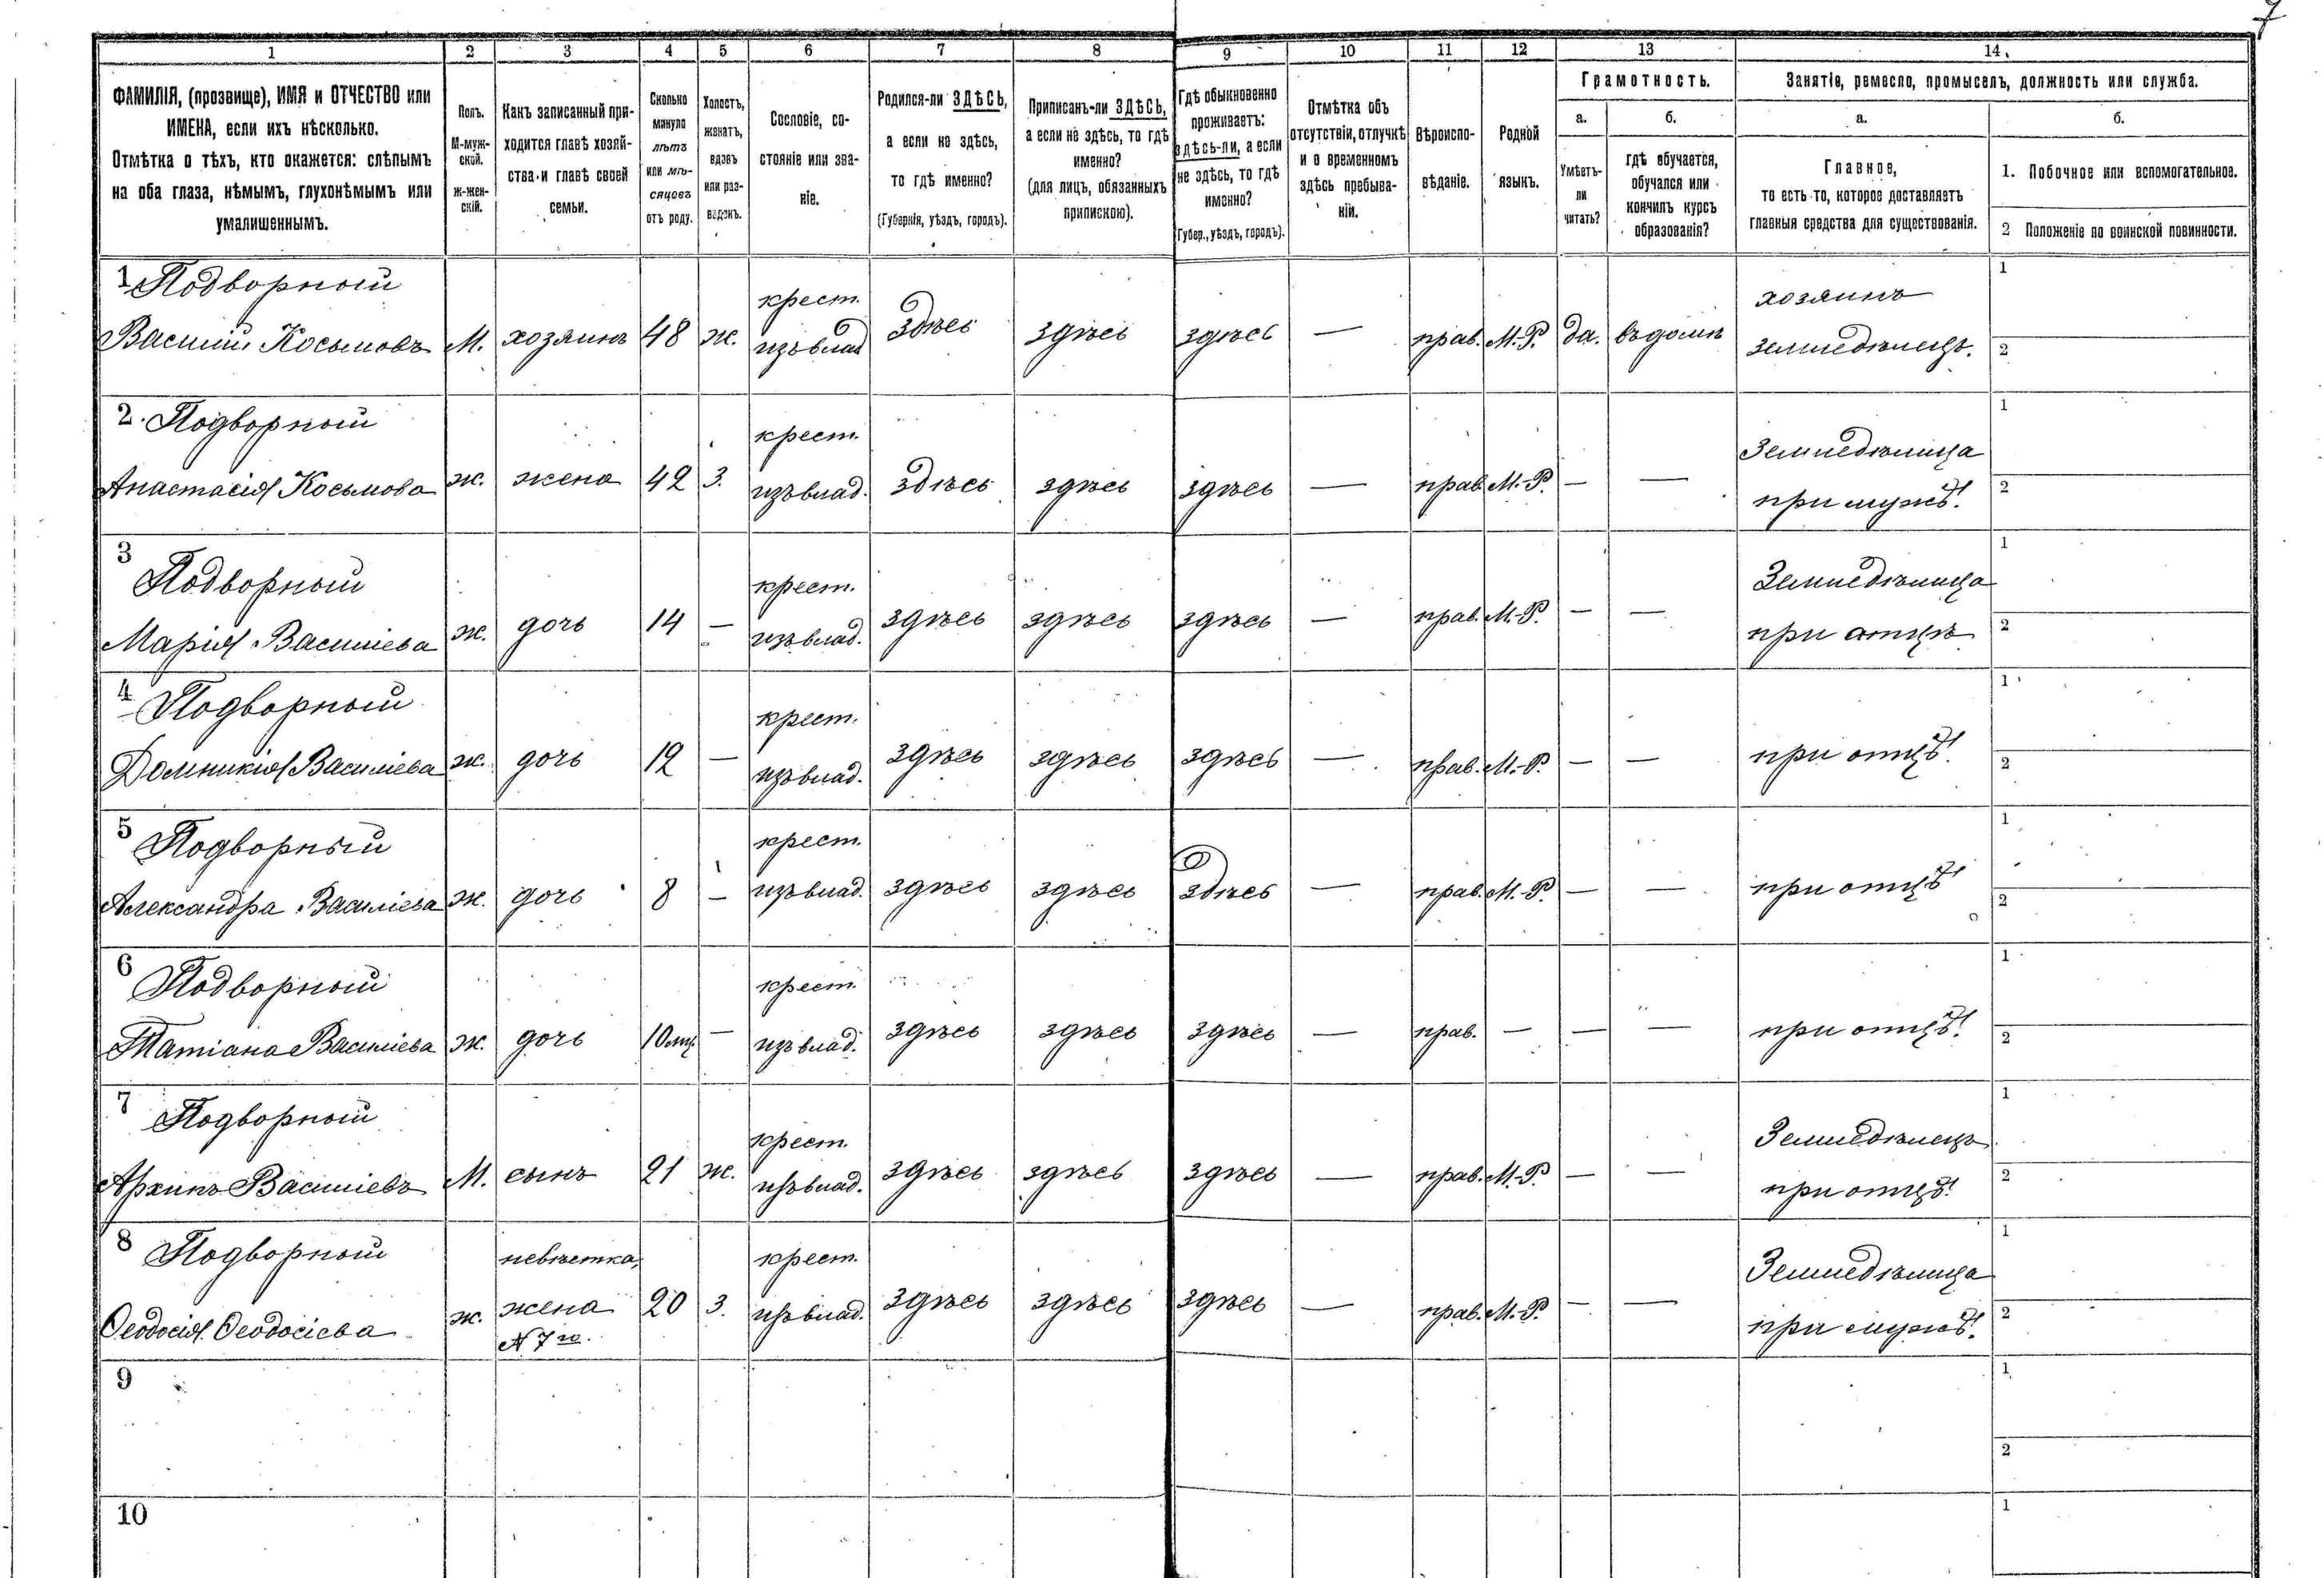 7
1 2 3 4 5 6 7 8 9 10 11 12 13 14.
ФАМИЛІЯ, (прозвище), ИМЯ и ОТЧЕСТВО или
ИМЕНА, если ихъ нѣсколько.
Отмѣтка о тѣхъ, кто окажется: слѣпымъ
на оба глаза, нѣмымъ, глухонѣмымъ или
умалишеннымъ.
Полъ.
М-муж-
ской.
ж-жен-
скій.
Какъ записанный при-
ходится главѣ хозяй-
ства и главѣ своей
семьи.
Сколько
минуло
лѣтъ
или мѣ-
сяцевъ
отъ роду.
Холостъ,
женатъ,
вдовъ
или раз-
веденъ.
Сословіе, со-
стояніе или зва-
ніе.
Родился-ли ЗДѢСЬ,
а если не здѣсь,
то гдѣ именно?
(Губернія, уѣздъ, городъ).
Приписанъ-ли ЗДѢСЬ,
а если не здѣсь, то гдѣ
именно?
(для лицъ, обязанныхъ
припискою).
Гдѣ обыкновенно
проживаетъ:
здѣсь-ли, а если
не здѣсь, то гдѣ
именно?
(Губер., уѣздъ, городъ).
Отмѣтка объ
отсутствіи, отлучкѣ
и о временномъ
здѣсь пребыва-
ніи.
Вѣроиспо-
вѣданіе.
Родной
языкъ.
Грамотность.
а.
Умѣетъ-
ли
читать?
б.
гдѣ обучается,
обучался или
кончилъ курсъ
образованія?
Занятіе, ремесло, промыселъ, должность или служба.
а.
Главное,
то есть то, которое доставляетъ
главныя средства для существованія.
б.
1. Побочное или вспомогательное.
2 Положеніе по воинской повинности.
1 Подворный крест. хозяинъ 1
Василій Косьмовъ М. хозяинъ 48 ж. изъ влад. здѣсь здѣсь здѣсь — прав. М.-Р. да. въ домѣ земледѣлецъ. 2
2. Подворный крест. Земледѣлица 1
Анастасія Косьмова ж. жена 42 З. изъ влад. здѣсь здѣсь здѣсь — прав. М.-Р. — — при мужѣ. 2
3 Подворный крест. Земледѣлица 1
Марія Василіева ж. дочь 14 — изъ влад. здѣсь здѣсь здѣсь — прав. М.-Р. — — при отцѣ 2
4 Подворный крест. 1
Домникія Василіева ж. дочь 12 — изъ влад. здѣсь здѣсь здѣсь — прав. М.-Р. — — при отцѣ. 2
5 Подворный крест. 1
Александра Василіева ж. дочь 8 — изъ влад. здѣсь здѣсь здѣсь — прав. М.-Р. — — при отцѣ 2
6 Подворный крест. 1
Татіана Василіева ж. дочь 10 мц. — изъ влад. здѣсь здѣсь здѣсь — прав. — — — при отцѣ. 2
7 Подворный крест. Земледѣлецъ 1
Архипъ Василіевъ М. сынъ 21 ж. изъ влад. здѣсь здѣсь здѣсь — прав. М.-Р. — — при отцѣ. 2
8 Подворный невѣстка, крест. Земледѣлица 1
Ѳеодосія Ѳеодосіева ж. жена 20 З. изъ влад. здѣсь здѣсь здѣсь — прав. М.-Р. — — при мужѣ. 2
N 7 го.
9 1
2
10 1